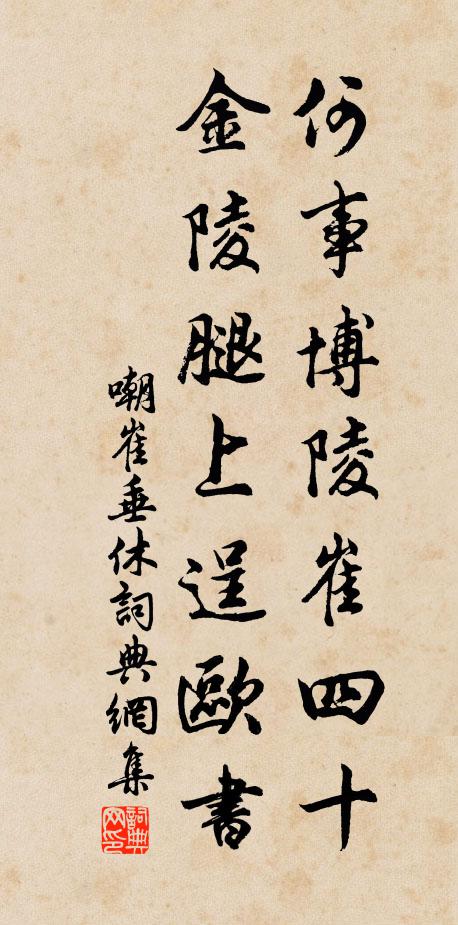 何事博陵崔四十
金陵腿上逞歐書
嘲崔垂休詞典網集
詞典網印